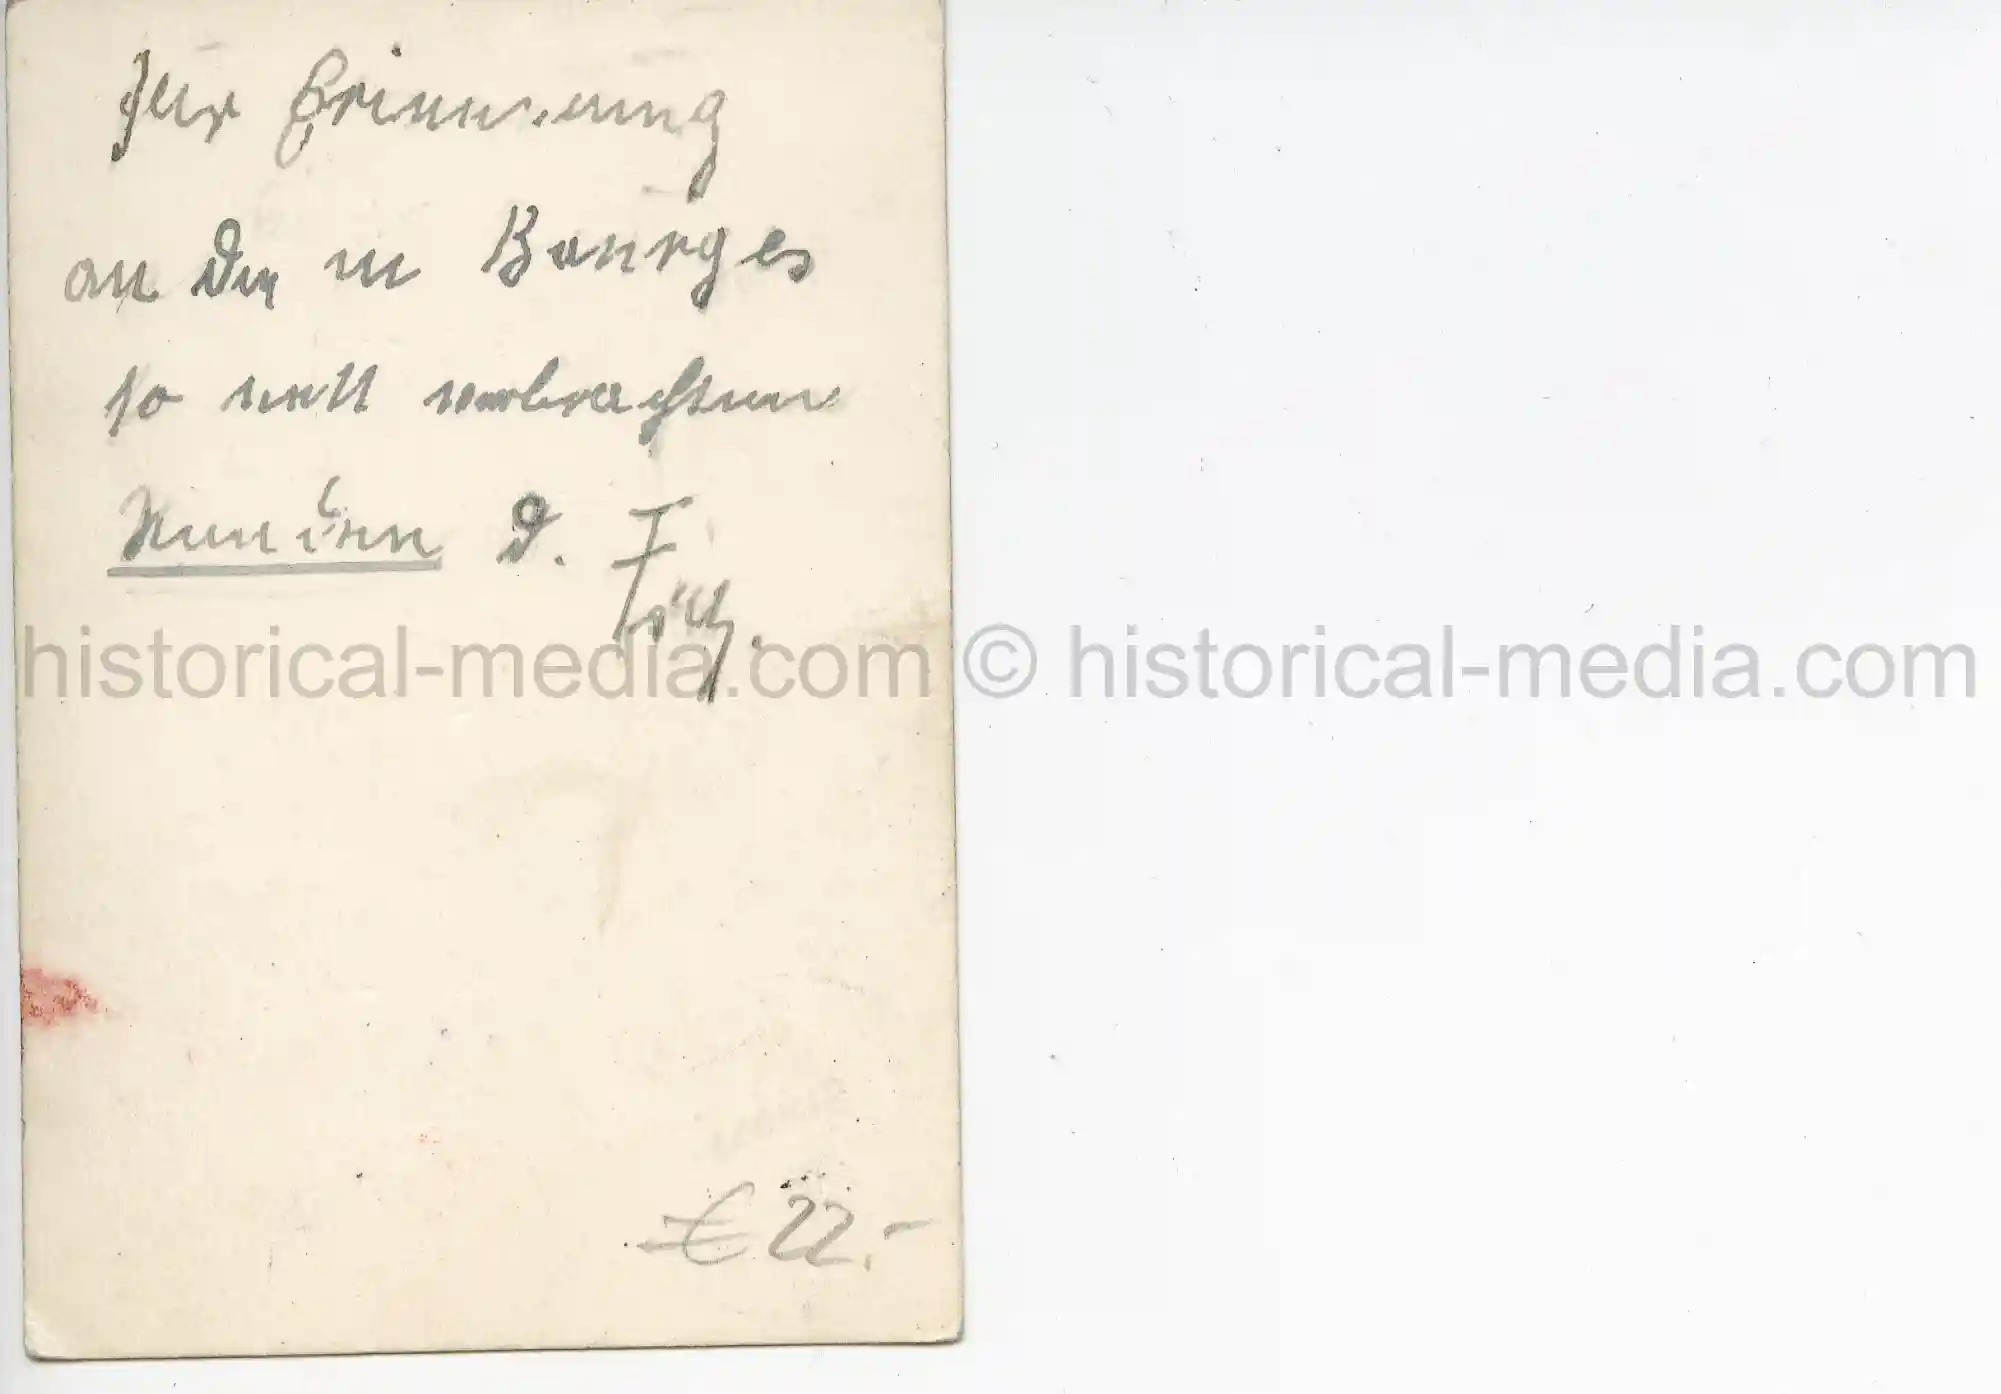 Zur Erinnerung
an den in Bourges
so nett verbrachten
d. F
historical-media.com © historical-media.com
€ 22.-